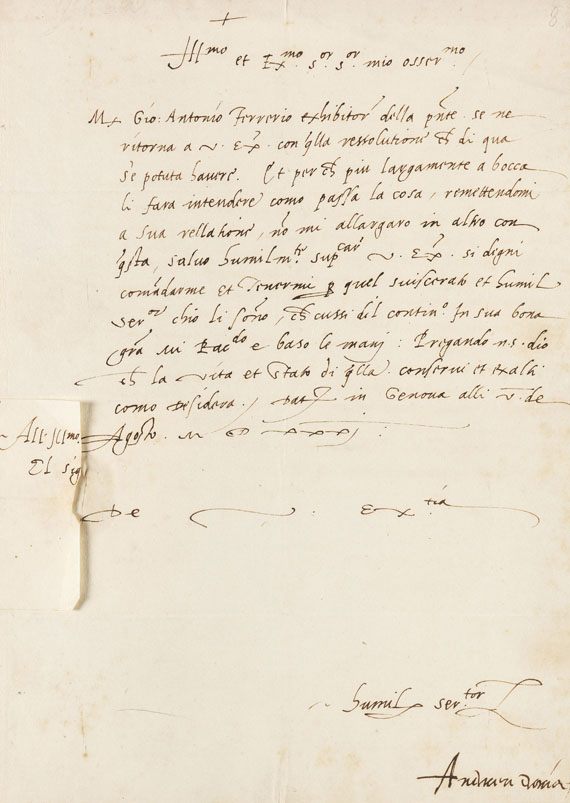 +
Ill^mo et Ex^mo s^or s^or mio osser^mo /
M. Gio: Antonio Ferrerio exhibitor della pnte se ne
ritorna a v. Ex. con qlla ressolutione ch di qua
s'e potuta havere. Et per ch piu largamente a bocca
li fara intendere como passa la cosa, remettendomi
a sua rellatione, no mi allargaro in altro con
qsta, salvo humilm^te sup^car v. Ex. si digni
comadarme et tenermi p quel sviscerato et humil
ser^or chio li sono, ch cussi dil contin^o In sua bona
gra mi Rac^do e baso le manj: Pregando n.s. dio
ch la vita et stato di qlla conservi et exalti
como desidera / Dat in Genova alli v. de
Agosto. M D XXXj:
All Ill^mo
El sig
De V. Ex^tia
humil ser^tor
Andrea Doria
8